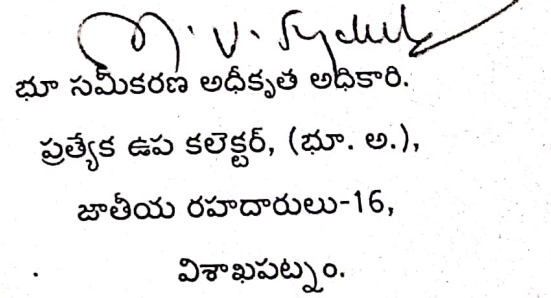 భూ సమీకరణ అధీకృత అధికారి.
ప్రత్యేక ఉప కలెక్టర్, (భూ. అ.),
జాతీయ రహదారులు-16,
విశాఖపట్నం.